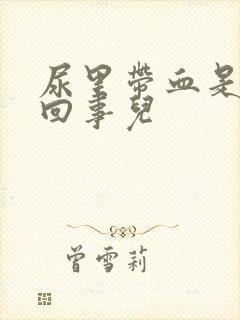 尿里带血是
回事兒
曾雪莉